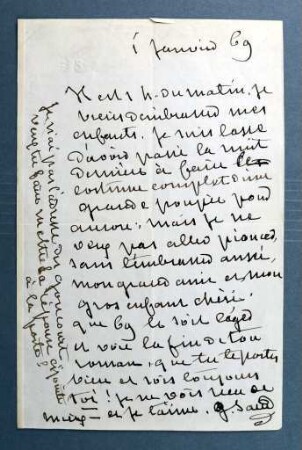 1 janvier 69
Il est 1 h. du matin, je
viens d'embrasser mes
enfants. je suis lasse
d'avoir passé la nuit
dernière à faire le
costume complet d'une
grande poupée pour
aurore; mais je ne
veux pas aller pioncer
sans t'embrasser aussi,
mon grand ami et mon
gros enfant chéri.
que 69 te soit léger
et voie la fin de ton
roman, que tu te portes
bien et sois toujours
toi! je ne vois rien de
mieux et je t'aime. G. Sand
je n'ai pas l'adresse des goncourt.
veux tu faire mettre la réponse ci jointe
à la poste?